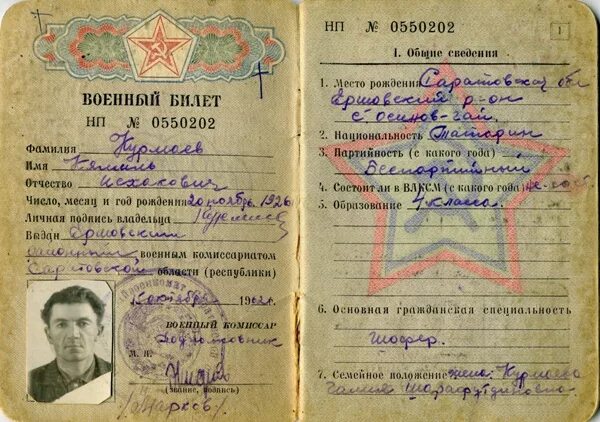 ВОЕННЫЙ БИЛЕТ
НП № 0550202
Фамилия Курмаев
Имя Кямиль
Отчество Исхакович
Число, месяц и год рождения 20 ноября 1926
Личная подпись владельца Курмаев
Выдан Ершовским
районным военным комиссариатом
Саратовской области (республики)
15 октября 1962 г.
ВОЕННЫЙ КОМИССАР
Подполковник
М. П.
(звание, подпись)
/Марков/
НП № 0550202
1
I. Общие сведения
1. Место рождения Саратовская обл
Ершовский р-он
с Осинов-Гай.
2. Национальность Татарин
3. Партийность (с какого года)
Беспартийный
4. Состоит ли в ВЛКСМ (с какого года) не-сост
5. Образование 4 класса.
6. Основная гражданская специальность
шофер.
7. Семейное положение жена Курмаева
Галия Шарафутдиновна